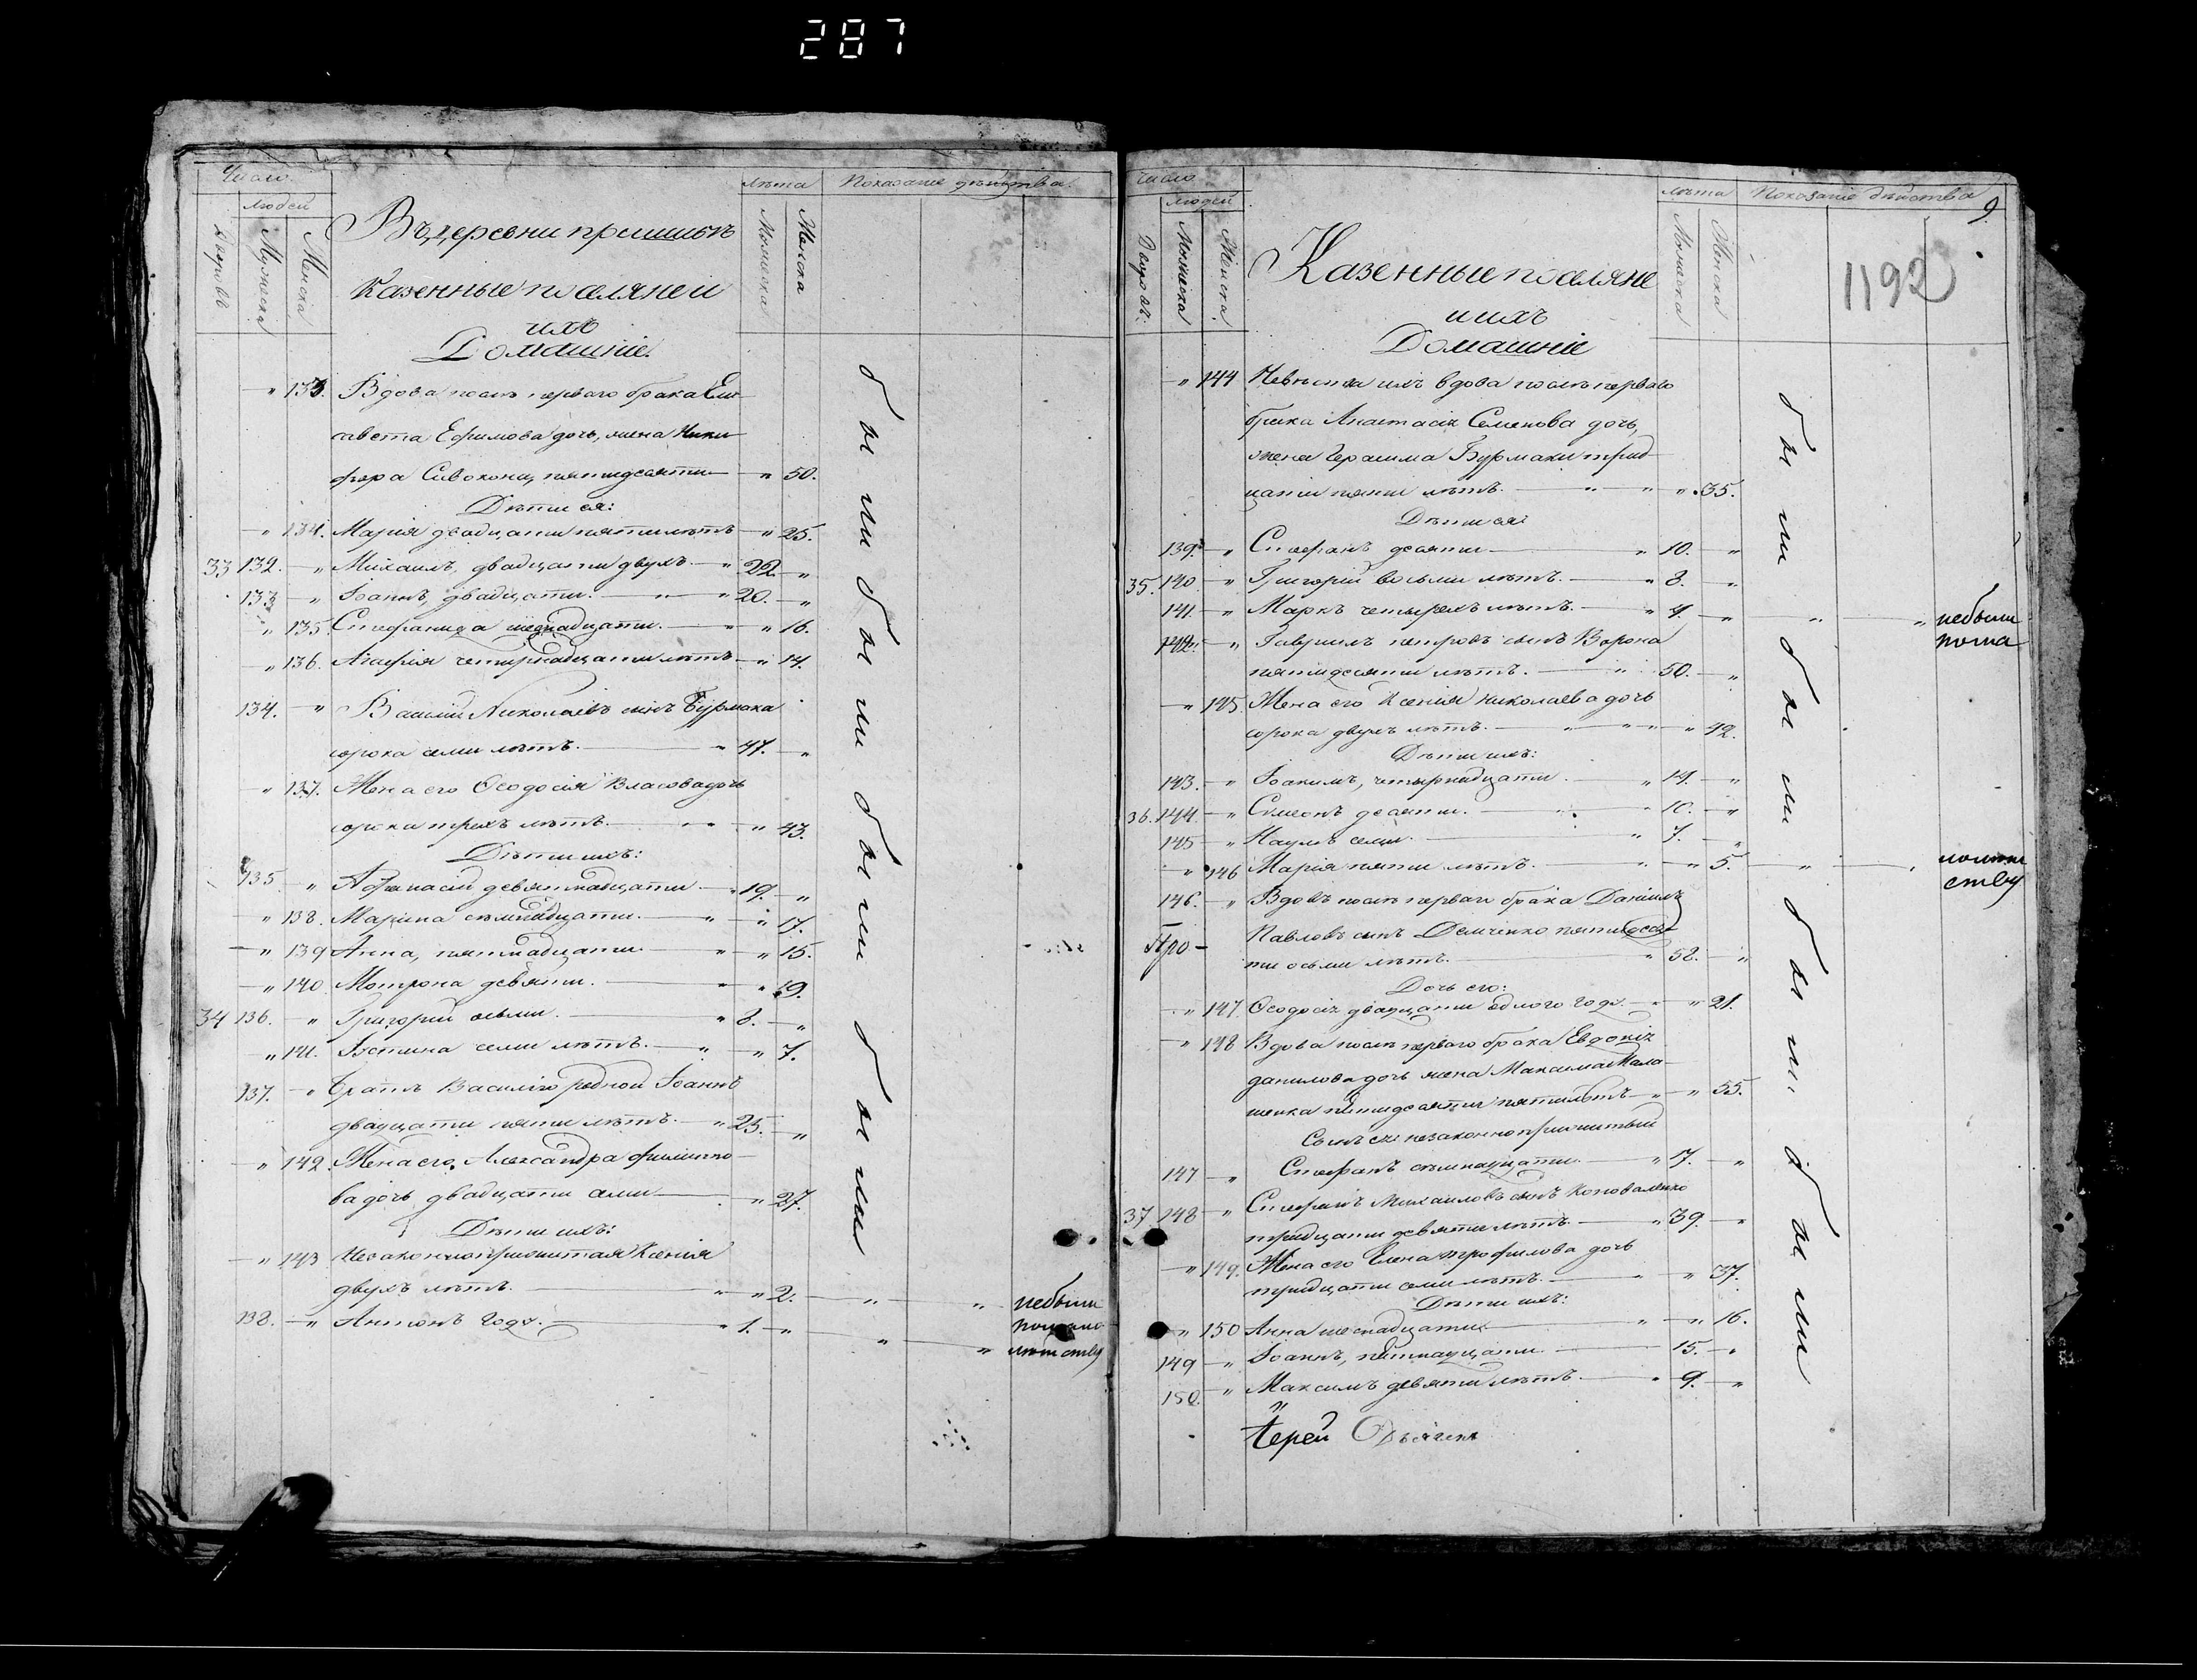 287
Число
людей
Дворовъ
Мужеска
Женска
Въ деревни
Казенные поселяне и
ихъ
Домашніе.
лѣта
Мужеска
Женска
Показаніе дѣйства.
" 133. Вдова послѣ перваго брака Ели-
савета Ефимова дочь, жена Ники-
фора Сивоконя, пятидесяти " 50.
Дѣти ея:
" 134. Марія двадцати пяти лѣтъ " 25.
33 132. " Михаилъ, двадцати двухъ " 22. "
133 " Іоаннъ, двадцати. " 20. "
" 135. Стефанида шеснадцати. " 16.
" 136. Агафія четырнадцати лѣтъ " 14.
134. " Василій Николаевъ сынъ Бурмака
сорока семи лѣтъ. " 47. "
" 137. Жена его Ѳеодосія Власова дочь
сорока трехъ лѣтъ. " 43.
Дѣти ихъ:
135 " Афанасій девятнадцати " 19. "
" 138. Марина семнадцати. " 17.
" 139 Анна, пятнадцати. " 15.
" 140. Мотрона девяти. " 9.
34 136. " Григорій осьми. " 8. "
" 141. Іустина семи лѣтъ. " 7.
137. " Братъ Василія родной Іоаннъ
двадцати пяти лѣтъ. " 25. "
" 142. Жена его, Александра Филиппо-
ва дочь двадцати семи " 27.
Дѣти ихъ:
" 143 Незаконноприжитая Ксенія
двухъ лѣтъ. " 2. " " небыли
138. " Антонъ года. " 1. " " "
были были были были
Число
людей
Дворовъ.
Мужеска
Женска.
Казенные поселяне
и ихъ
Домашніе
лѣта
Мужеска
Женска
Показаніе дѣйства
9
1192
" 144 Невѣстка ихъ вдова послѣ перваго
брака Анастасія Семенова дочь,
жена Герасима Бурмаки трид-
цати пяти лѣтъ. " " " 35.
Дѣти ея:
139. " Стефанъ десяти " 10. "
35. 140 " Григорій восьми лѣтъ. " 8. "
141. " Маркъ четырехъ лѣтъ. " 4. " " " небыли
142. " Гавріилъ петровъ сынъ Ворона
пятидесяти лѣтъ. " 50. "
" 145. Жена его Ксенія Николаева дочь
сорока двухъ лѣтъ. " " " " 42.
Дѣти ихъ:
143. " Іоакимъ, четырнадцати. " 14. "
36. 144. " Симеонъ десяти. " 10. "
145 " Наумъ семи. " 7. "
" 146 Марія пяти лѣтъ. " " 5. " "
146. " Вдовъ послѣ перваго брака Даніилъ
Павловъ сынъ Демченко пятидеся-
ти осьми лѣтъ. " 58. "
Дочь его:
" 147. Ѳеодосія двадцати одного года. " " 21.
" 148 Вдова послѣ перваго брака Евдокія
данилова дочь жена Максима Мала-
шенка пятидесяти пяти лѣтъ " " 55.
Сынъ ея: незаконноприжитый
147 " Стефанъ семнадцати. " 17. "
37 148 " Стефанъ Михаиловъ сынъ Коноваленко
тридцати девяти лѣтъ. " 39. "
" 149. Жена его Елена Трофимова дочь
тридцати семи лѣтъ. " " 37.
Дѣти ихъ:
" 150 Анна шеснадцати " " 16.
149 " Іоаннъ, пятнадцати. 15. "
150. " Максимъ девяти лѣтъ. " 9. "
были были были были
Іерей